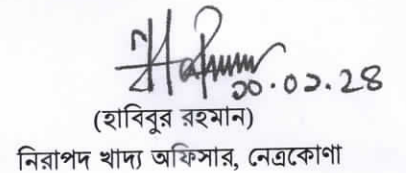 ৩০.০১.২৪
(হাবিবুর রহমান)
নিরাপদ খাদ্য অফিসার, নেত্রকোণা